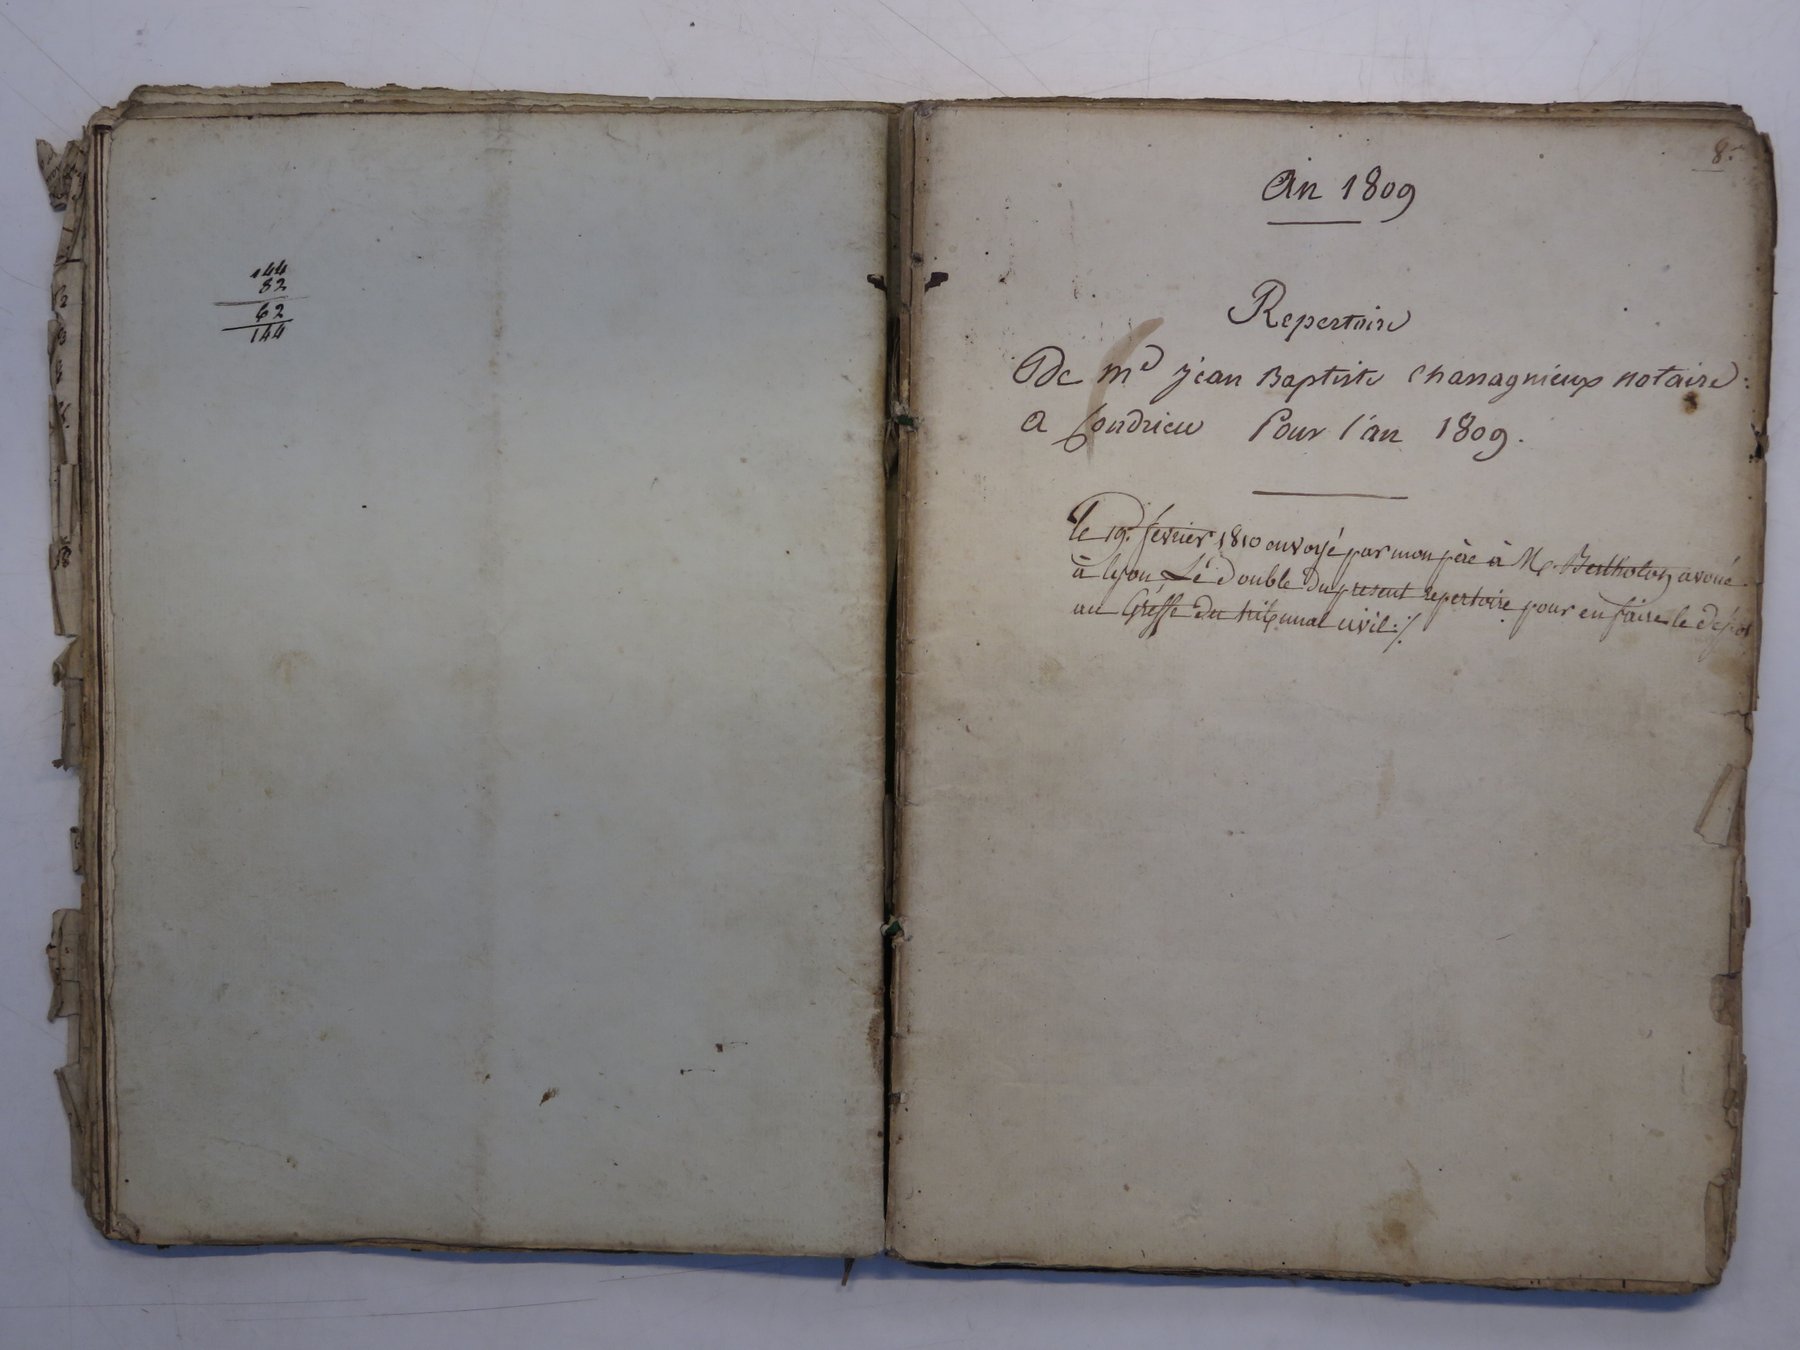 144
82
62
144
8.
An 1809
Repertoire
De Me jean Baptiste Chanagnieux notaire
a Condrieu Pour l'an 1809.
le 19. février 1810 envoyé par mon père à Mr. Bertholon avoué
à lyon Le double du present repertoire pour en faire le dépot
au Greffe du tribunal civil ./.